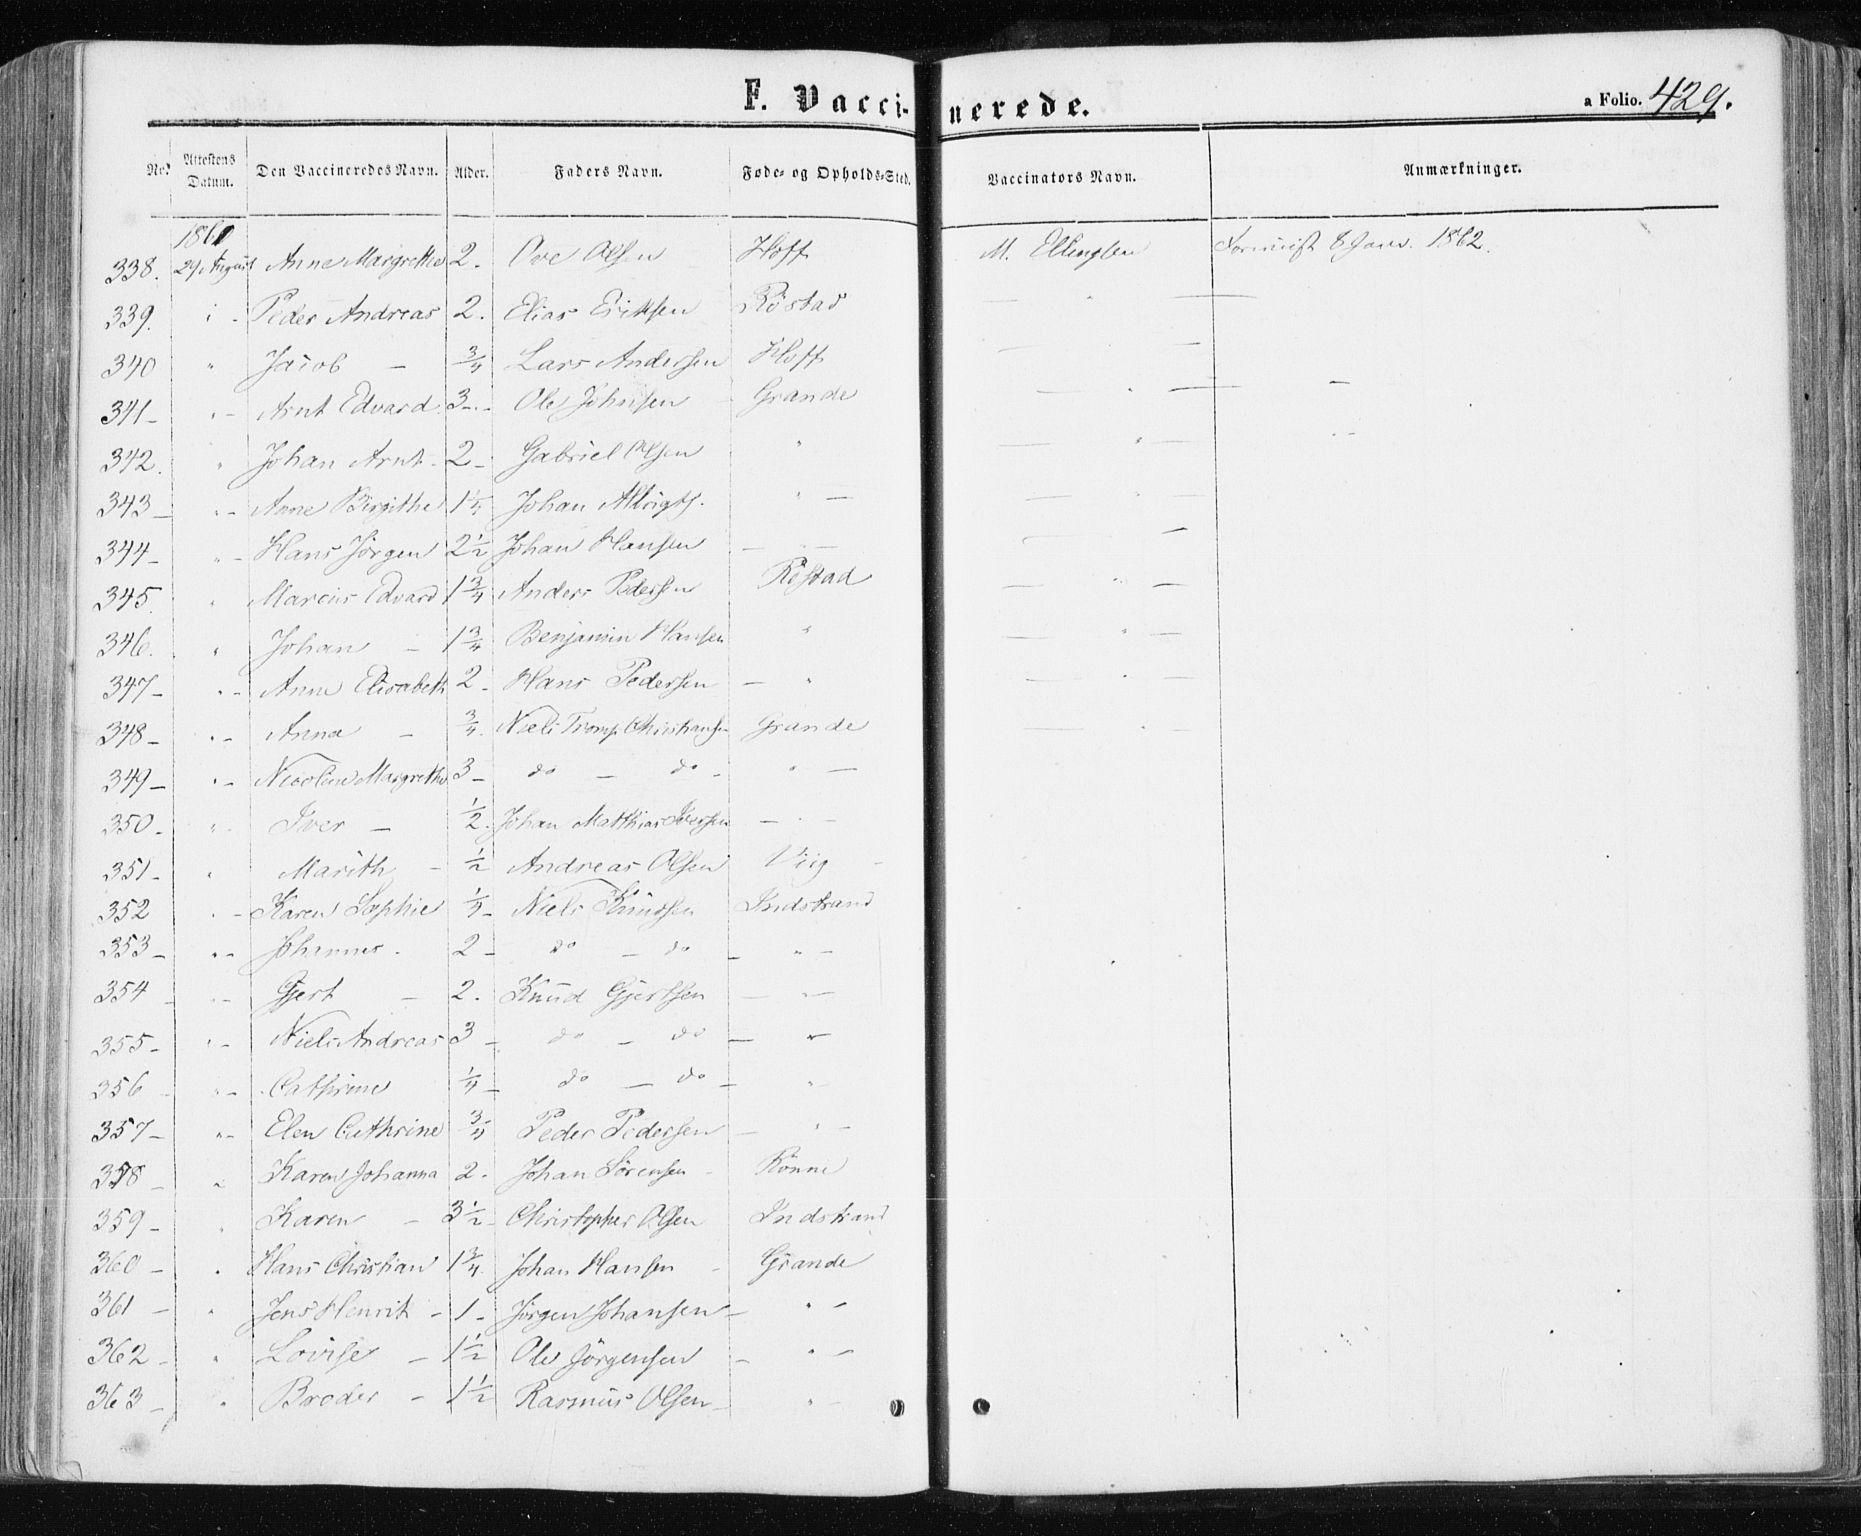 F. Vaccinerede.
a Folio. 429.
No. Attestens Datum. Den Vaccineredes Navn. Alder. Faders Navn. Føde- og Opholds-Sted. Vaccinators Navn. Anmærkninger.
1861
338. 29 August Anne Margrethe 2. Ove Olsen Hoff M. Ellingsen 8 Janr. 1862.
339. " - Peder Andreas 2. Elias Eriksen Röstad — " —
340 " Jacob - 3/4 Lars Andersen Hoff — —
341 - " - Arnt Edvard 3 - Ole Johnsen - Grande — " — —
342. " Johan Arnt - 2 - Gabriel Olsen " — " — " -
343 - " - Anne Birgithe 1 1/4 Johan Albrigts. " — — " —
344 - " - Hans Jörgen 2 1/2 Johan Hansen — " — — —
345. " Marcus Edvard 1 3/4 Anders Pedersen Röstad — " —
346. " Johan - 1 3/4 Benjamin Hansen " — " —
347 - " - Anne Elisabeth 2 - Hans Pedersen — " — " —
348 - " - Anna - 3/4. Niels Tromp Christiansen Grande — " —
349 - " - Nicoline Margrethe 3 - do - do - " —
350 - " - Iver - 1/2. Johan Matthias Iversen — " —
351 - " Marith - 1/2 Andreas Olsen Viig -
352 " - Karen Sophie 1/4 - Niels Knudsen Indstrand
353 - " - Johannes - 2 - do - do - " -
354 - " - Gjert - 2. Knud Gjertsen — " —
355 - " - Niels Andreas 3 - do - do — "
356 - " - Cathrine 1/4 - do — do - "
357 - " - Elen Cathrine 3/4 Peder Pedersen — " -
358 - " Karen Johanna 2 - Johan Sörensen - Rönne
359 - " Karen - 3 1/2 - Christopher Olsen Indstrand
360 - " Hans Christian 1 3/4. Johan Hansen - Grande
361 - " Jens Henrik - 1 - Jörgen Johansen - " -
362 - " Lovise - 1 1/2 Ole Jörgensen - " -
363 - " Broder - 1 1/2 Rasmus Olsen - " -